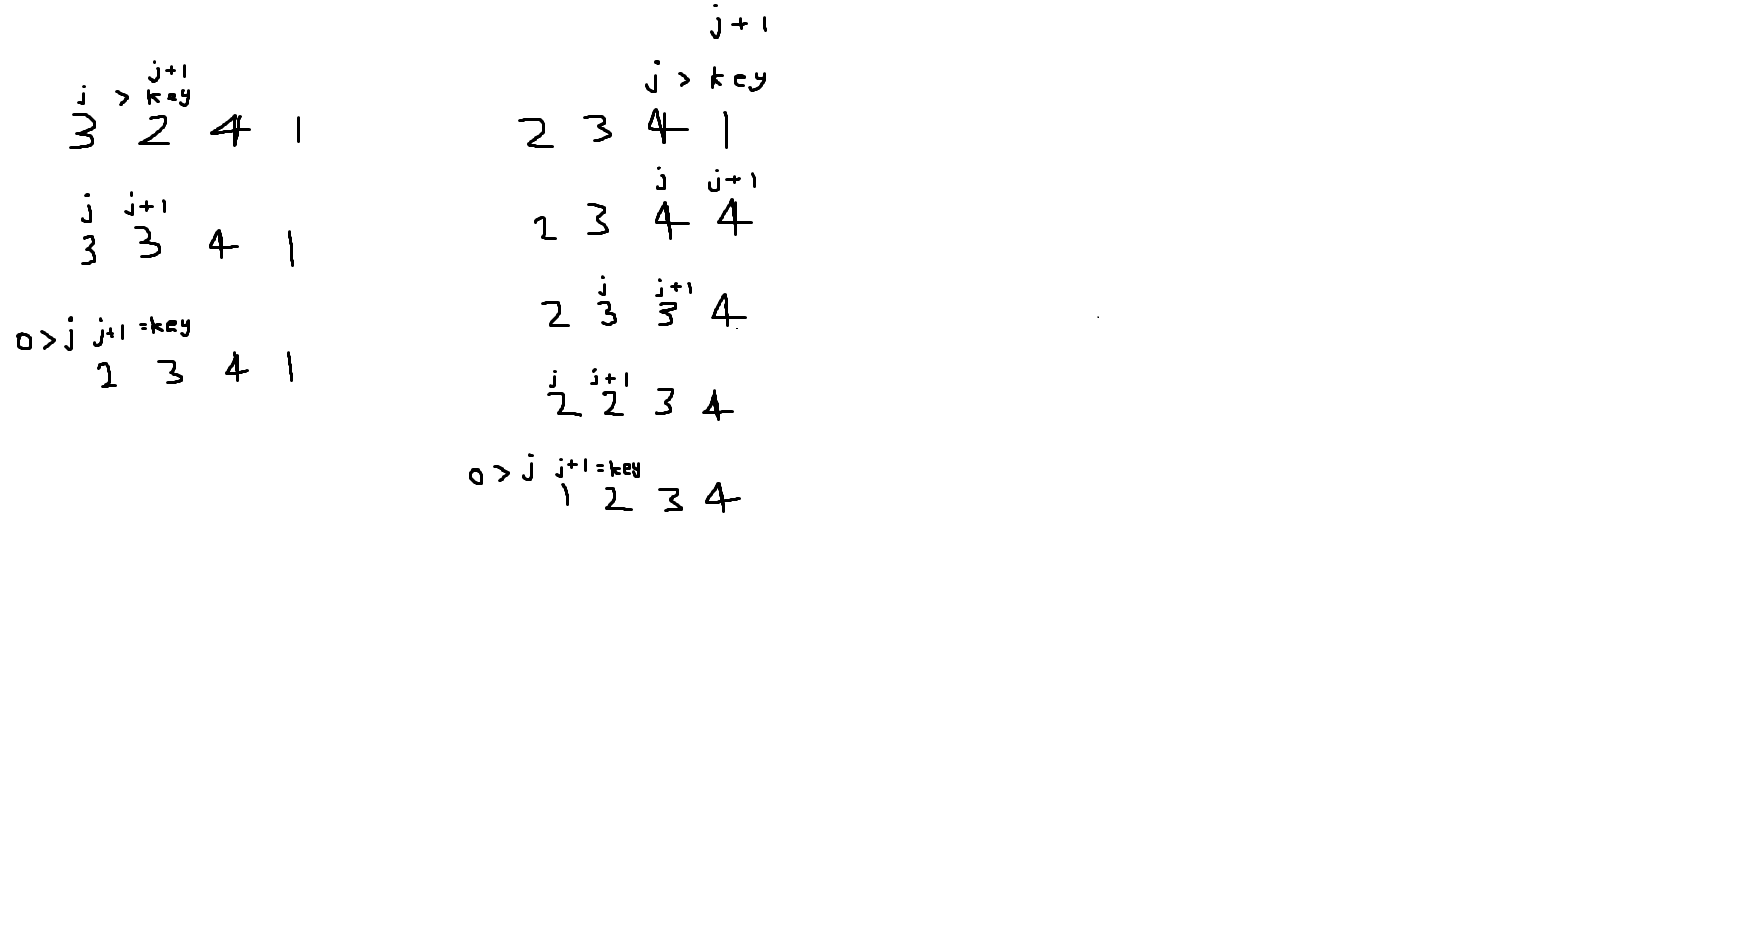 j+1
j > key
3 2 4 1
j j+1
3 3 4 1
0>j j+1 =key
2 3 4 1
j+1
j > key
2 3 4 1
j j+1
2 3 4 4
j j+1
2 3 3 4
j j+1
2 2 3 4
0>j j+1=key
1 2 3 4